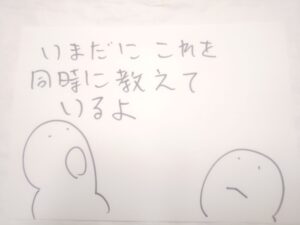 いまだに これを
同時に教えて
いるよ